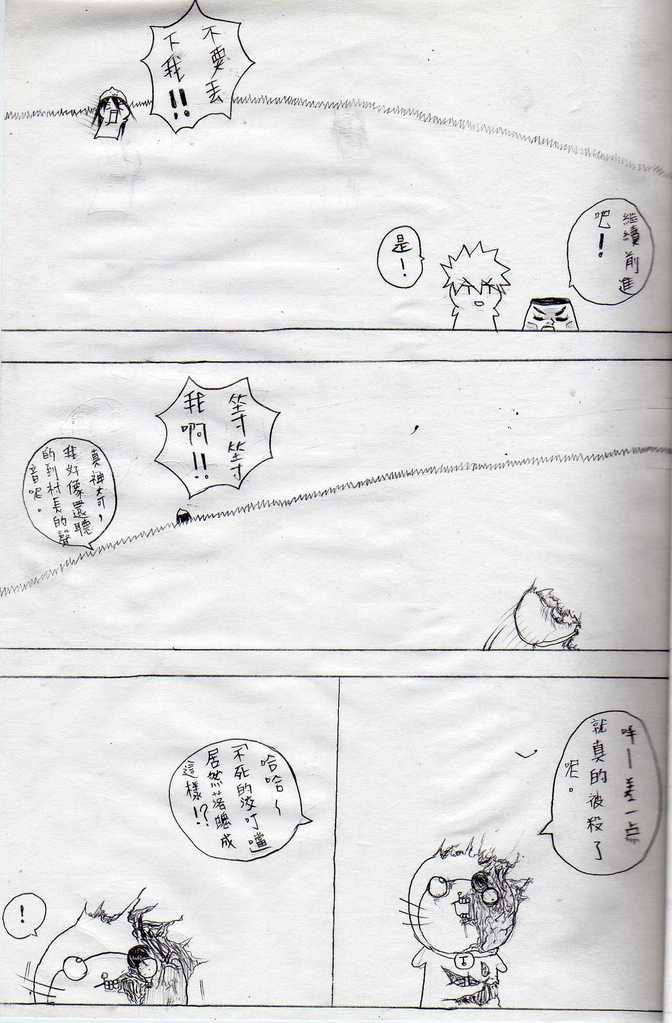 不要丟
下我!!
繼續前進
吧!
是!
等等
我啊!!
真神奇，
我好像還聽
的到村長的聲
音呢。
呼—差一点
就真的被殺了
呢。
哈哈~
「不死的叮噹」
居然落成
這樣!?
!